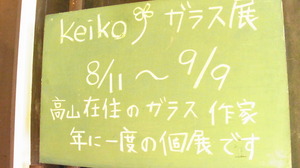 Keiko ガラス展
8/11 〜 9/9
高山在住のガラス作家
年に一度の個展です